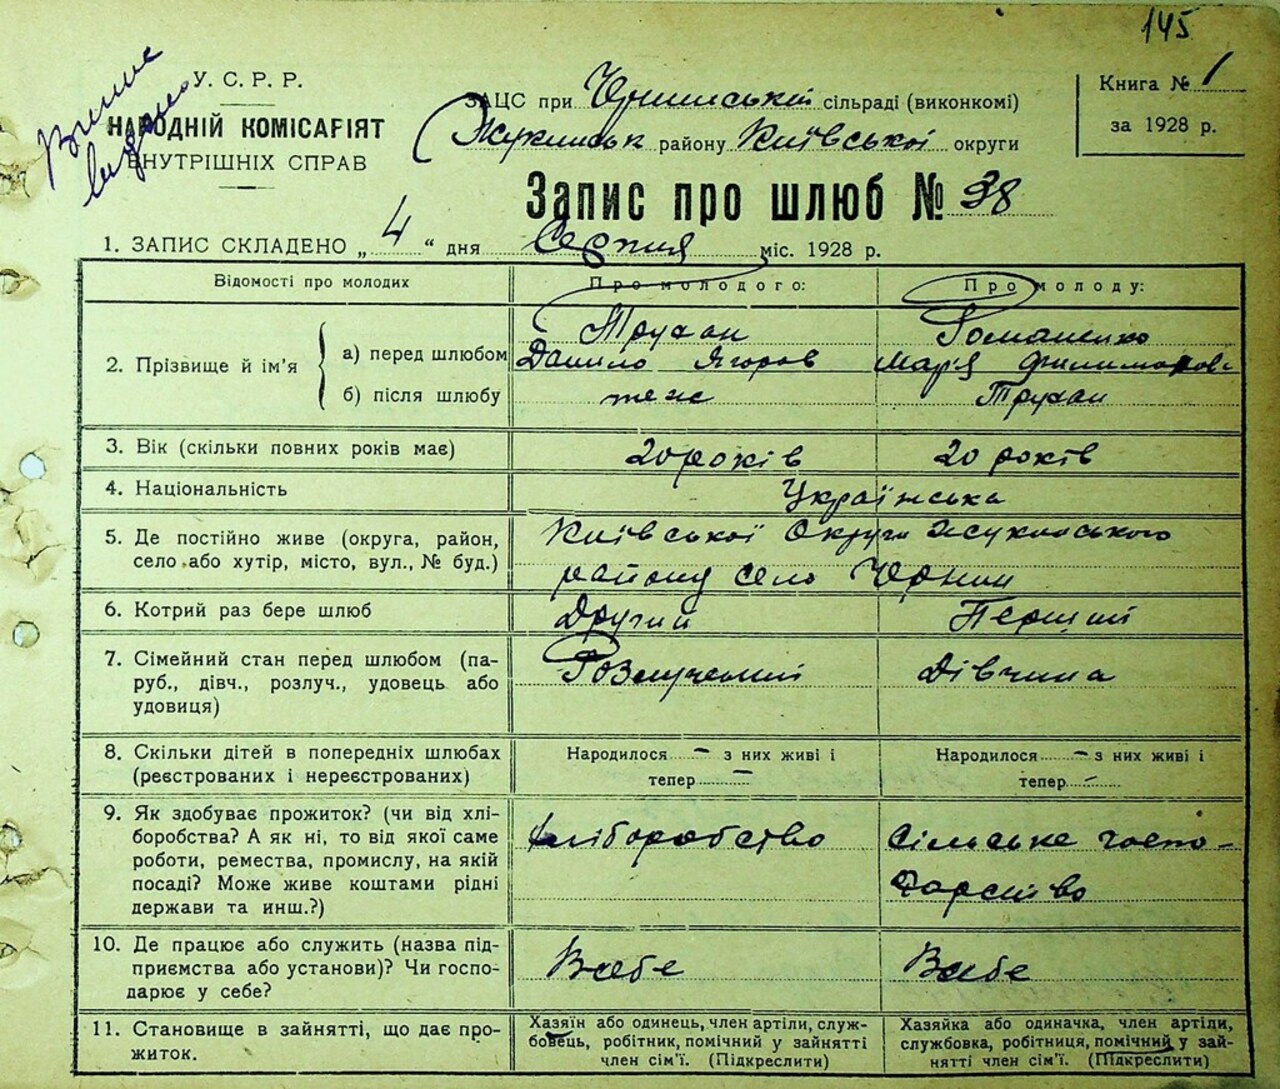 145
Випис
видано
У. С. Р. Р.
НАРОДНІЙ КОМІСАРІЯТ
ВНУТРІШНІХ СПРАВ
ЗАЦС при Чернинській сільраді (виконкомі)
Жукинськ району Київської округи
Книга № 1
за 1928 р.
Запис про шлюб № 38
1. ЗАПИС СКЛАДЕНО „ 4 “ дня Серпня міс. 1928 р.
Відомості про молодих
Про молодого:
Про молоду:
2. Прізвище й ім'я
а) перед шлюбом
Трухан
Данило Ягоров
Романенко
Мар'я Филимонов
б) після шлюбу
теж
Трухан
3. Вік (скільки повних років має)
20 років
20 років
4. Національність
Українська
5. Де постійно живе (округа, район,
село або хутір, місто, вул., № буд.)
Київської Округи Жукинського
району село Чернин
6. Котрий раз бере шлюб
Другий
Перший
7. Сімейний стан перед шлюбом (па-
руб., дівч., розлуч., удовець або
удовиця)
Розлучений
Дівчина
8. Скільки дітей в попередніх шлюбах
(реєстрованих і нереєстрованих)
Народилося — з них живі і
тепер —
Народилося — з них живі і
тепер —
9. Як здобуває прожиток? (чи від хлі-
боробства? А як ні, то від якої саме
роботи, ремества, промислу, на якій
посаді? Може живе коштами рідні
держави та инш.?)
хліборобство
Сільське госпо-
дарство
10. Де працює або служить (назва під-
приємства або установи)? Чи госпо-
дарює у себе?
В себе
В себе
11. Становище в зайнятті, що дає про-
житок.
Хазяїн або одинець, член артіли, служ-
бовець, робітник, помічний у зайнятті
член сім'ї. (Підкреслити)
Хазяйка або одиначка, член артіли,
службовка, робітниця, помічний у зай-
нятті член сім'ї. (Підкреслити)